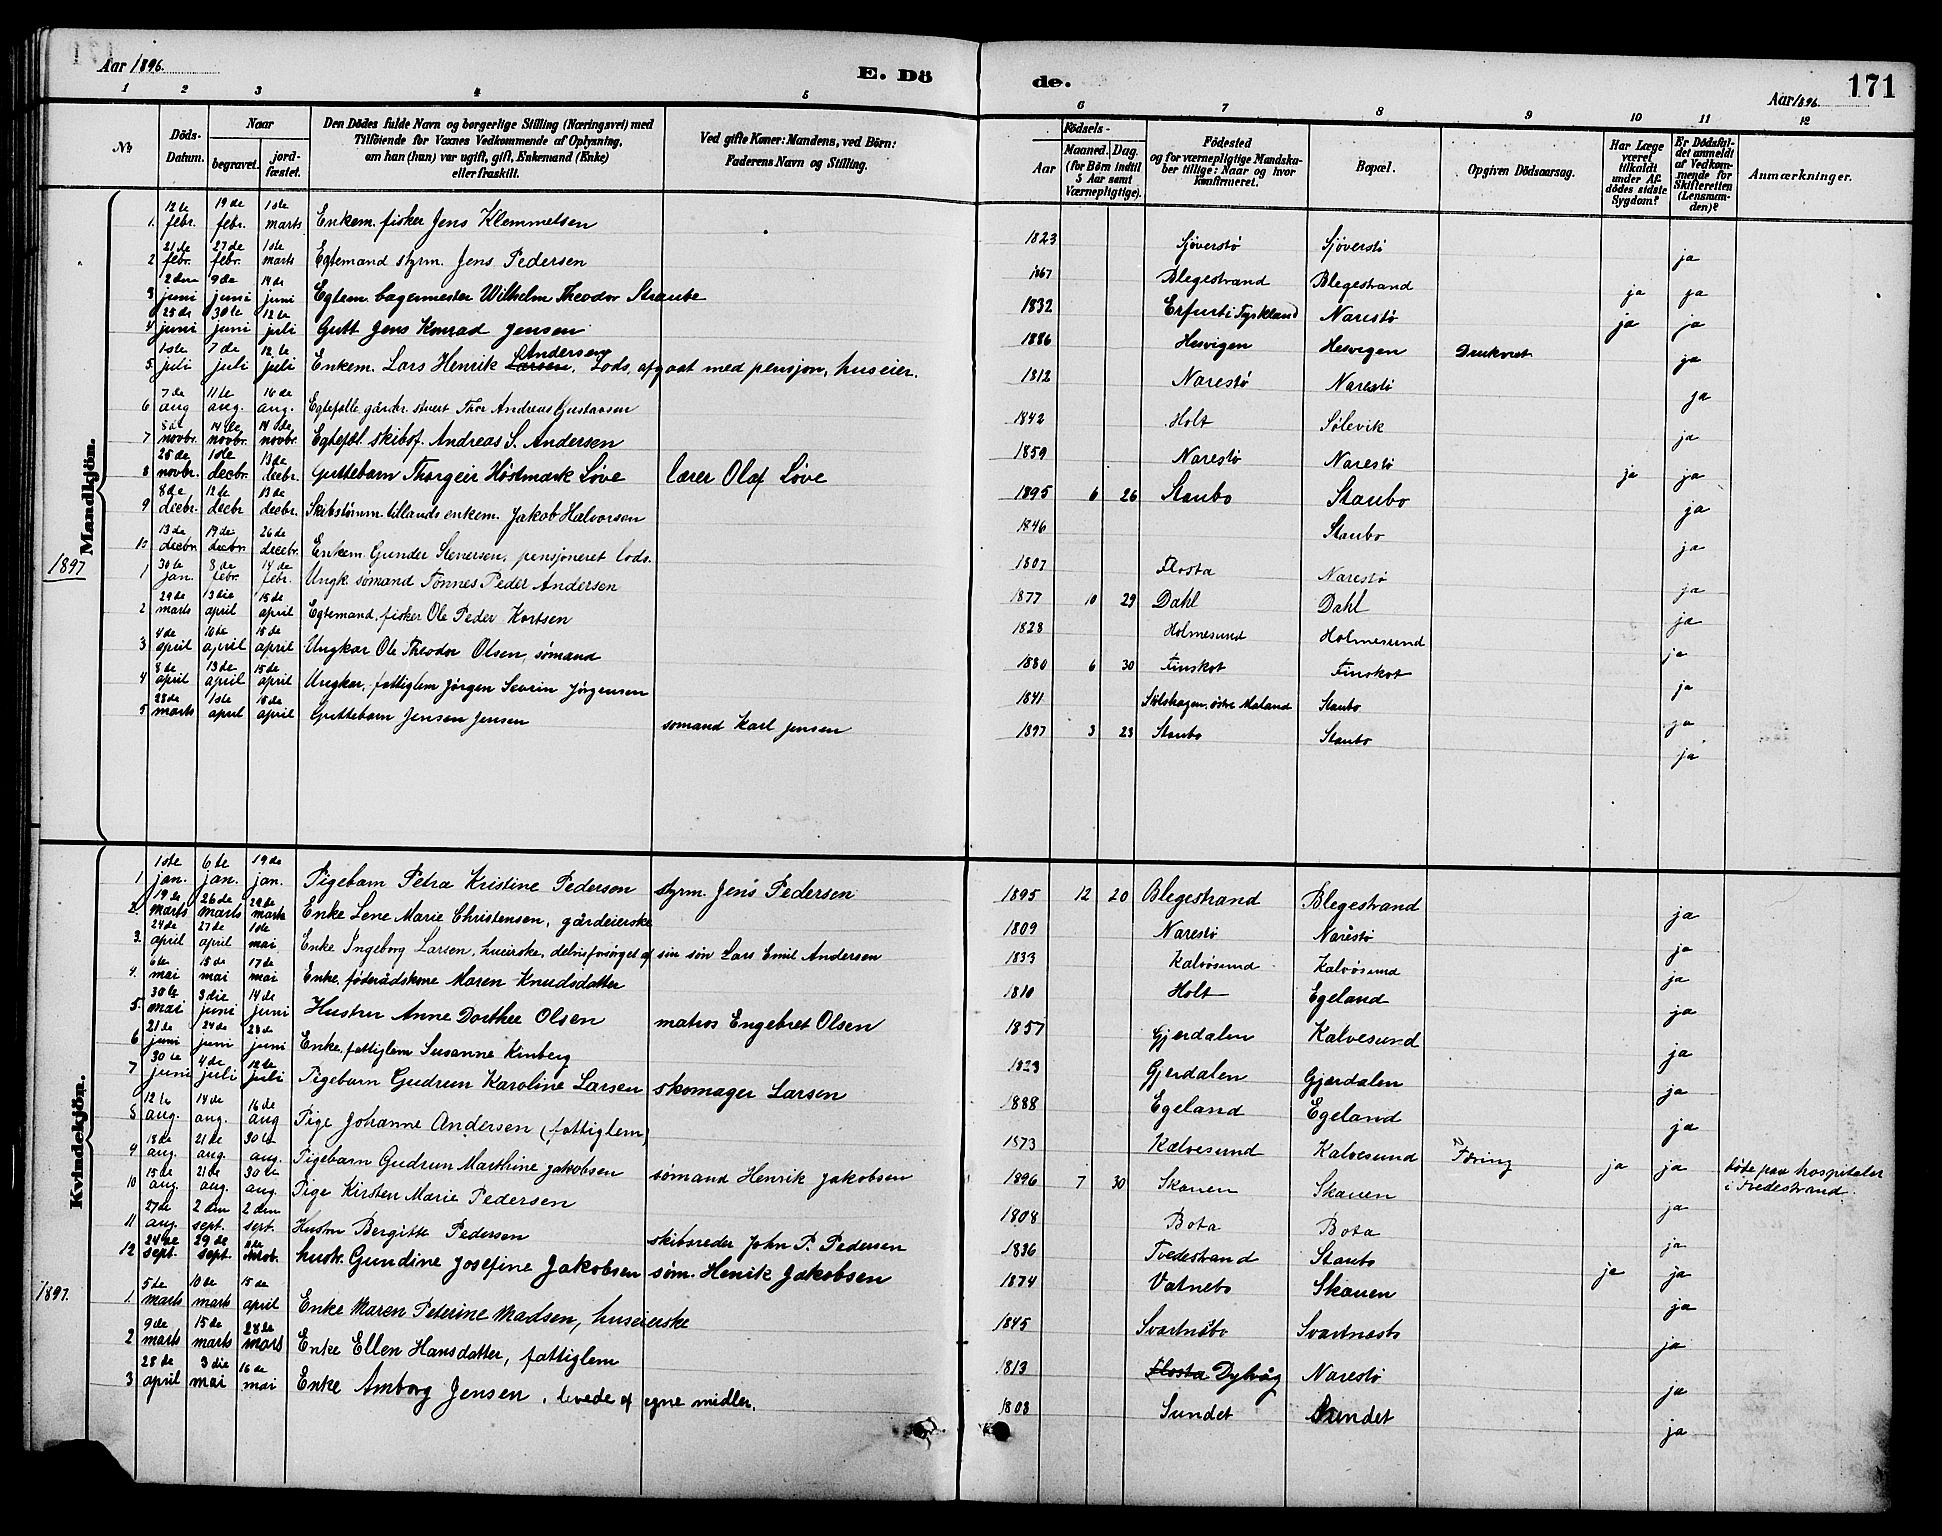 Aar 1896.
E. Dö
de.
Aar 1896.
171
1 2 3 4 5 6 7 8 9 10 11 12
No
Döds-Datum.
Naar
begravet.
jord-fæstet.
Den Dödes fulde Navn og borgerlige Stilling (Næringsvei) med Tilföiende for Voxnes Vedkommende af Oplysning, om han (hun) var ugift, gift, Enkemand (Enke) eller fraskilt.
Ved gifte Koner: Mandens, ved Börn: Faderens Navn og Stilling.
Födsels-
Aar
Maaned. Dag.
(for Börn indtil 5 Aar samt Værnepligtige).
Födested og for værnepligtige Mandskaber tillige: Naar og hvor konfirmeret.
Bopæl.
Opgiven Dödsaarsag.
Har Læge været tilkaldt under Afdödes sidste Sygdom?
Er Dödsfaldet anmeldt af Vedkommende for Skifteretten (Lensmanden)?
Anmærkninger.
Mandkjön.
1. 12te febr. 19de febr. 1ste marts Enkem. fisker Jens Klemmetsen 1823 Sjöverstö Sjöverstö ja
2 21de febr. 27de febr. 1ste marts Egtemand styrm. Jens Pedersen 1867 Blegestrand Blegestrand ja ja
3 2den juni 9de juni 14de juni Egtem. bagermester Wilhelm Theodor Straube 1832 Erfurt i Tyskland Narestö ja ja
4 25de juni 30te juni 12te juli Gutt Jens Konrad Jensen 1886 Hesvigen Hesvigen Druknet ja
5. 1ste juli 7de juli 12te juli Enkem. Lars Henrik Larsen Andersen, Lods, afgaat med pensjon, huseier. 1812 Narestö Narestö ja
6 7de aug 11te aug. 16de aug. Egtefolk. gårdbr. stuert Thor Andreas Gustavsen 1842 Holt Sølevik ja
7 5te novbr. 14de novbr. 14de novbr. Egtefæl. skibsf. Andreas S. Andersen 1859 Narestö Narestö ja ja
8 25de novbr. 1ste decbr. 13de decbr. Guttebarn Thorgeir Høstmark Løve lærer Olaf Løve 1895 6 26 Staubo Staubo ja
9 8de decbr. 12te decbr 13de decbr. Skibstømm. tillands enkem. Jakob Halvorsen 1846 Staubo ja
10 13de decbr. 19de decbr. 26de decbr. Enkem. Gunder Stenersen, pensjoneret lods. 1807 Flosta Narestö ja
1897
1 30te jan. 8de febr. 14de febr. Ungk. sømand Tønnes Peder Andersen 1877 10 29 Dahl Dahl ja
2 29de marts 13die april 15de april Egtemand, fisker Ole Peder Kortsen 1828 Holmesund Holmesund ja
3 4de april 10de april 15de april Ungkar Ole Theodor Olsen, sømand 1880 6 30 Finskot Finskot ja
4 8de april 13de april 15de april Ungkar, fattiglem Jørgen Severin Jørgensen 1841 Stølshagen, østre Moland Staubo ja
5 28de marts 1ste april 15de april Guttebarn Jensen Jensen sømand Karl Jensen 1897 3 23 Staubo Staubo ja
Kvindekjön.
1 1ste jan. 6te jan. 19de jan. Pigebarn Petra Kristine Pedersen styrm. Jens Pedersen 1895 12 20 Blegestrand Blegestrand ja
2. 19de marts 26de marts 29de marts Enke Lene Marie Christensen, gårdeierske 1809 Narestö Narestö ja
3. 24de april 27de april 1ste mai Enke Ingeborg Larsen, huseierske, delvis forsørget af sin søn Lars Emil Andersen 1833 Kalvösund Kalvösund ja
4. 6te mai 15de mai 17de mai Enke, føderådskone Maren Knudsdatter 1810 Holt Egeland ja
5. 30te mai 3die juni 14de juni Hustru Anne Dorthee Olsen matros Engebret Olsen 1857 Gjerdalen Kalvesund ja
6 21de juni 24de juni 28de juni Enke, fattiglem Susanne Kinberg 1829 Gjerdalen Gjerdalen ja
7 30te juni 4de juli 12te juli Pigebarn Gudrun Karoline Larsen skomager Larsen 1888 Egeland Egeland ja
8 12te aug. 14de aug. 16de aug Pige Johanne Andersen (fattiglem) 1873 Kalvesund Kalvesund Tæring ja ja døde paa hospitalet i Tvedestrand.
9 18de aug. 21de aug. 30te aug. Pigebarn Gudrun Marthine Jakobsen sømand Henrik Jakobsen 1896 7 30 Skauen Skauen ja
10 15de aug. 21de aug. 30te aug. Pige Kirsten Marie Pedersen 1808 Bota Bota ja
11 27de aug. 2den sept. 2den sept. Hustru Bergitte Pedersen skibsreder John P. Pedersen 1836 Tvedestrand Staubo ja ja
12 24de sept. 29de sept. oktob. hustr. Gundine Josefine Jakobsen søm. Henrik Jakobsen 1874 Vatnebo Skauen ja
1897.
1. 5te marts 10de marts 15de april Enke Maren Peterine Madsen, huseierske 1845 Svartnæsbo Svartnæsbo ja
2 9de marts 15de marts 28de marts Enke Ellen Hansdatter, fattiglem 1813 Flosta Dybvåg Narestö ja
3 28de april 3die mai 16de mai Enke Amborg Jensen, levede af egne midler. 1803 Sundet Sundet ja